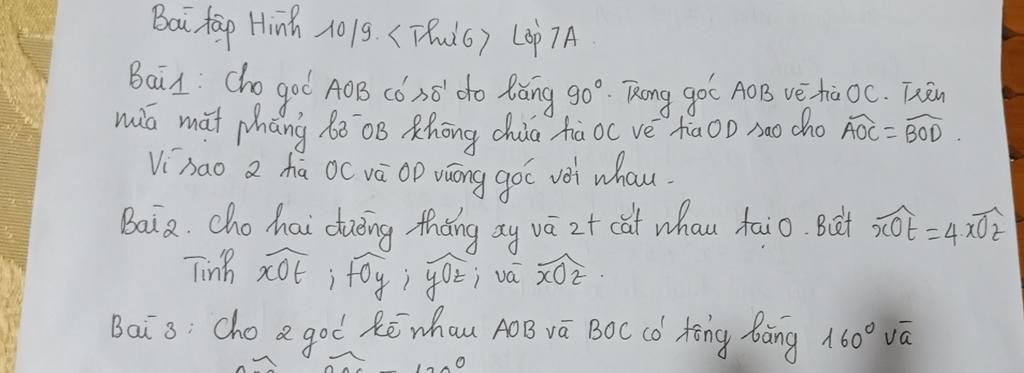 Bài tập Hình 10/9. <Thứ 6> Lớp 7A
Bài 1: Cho góc AOB có số đo bằng 90°. Trong góc AOB vẽ tia OC. Trên
nửa mặt phẳng bờ OB không chứa tia OC vẽ tia OD sao cho AOC = BOD.
Vì sao 2 tia OC và OD vuông góc với nhau.
Bài 2. Cho hai đường thẳng xy và zt cắt nhau tại O. Biết xOt = 4.xOz
Tính xOt ; tOy ; yOz ; và xOz.
Bài 3: Cho 2 góc kề nhau AOB và BOC có tổng bằng 160° và